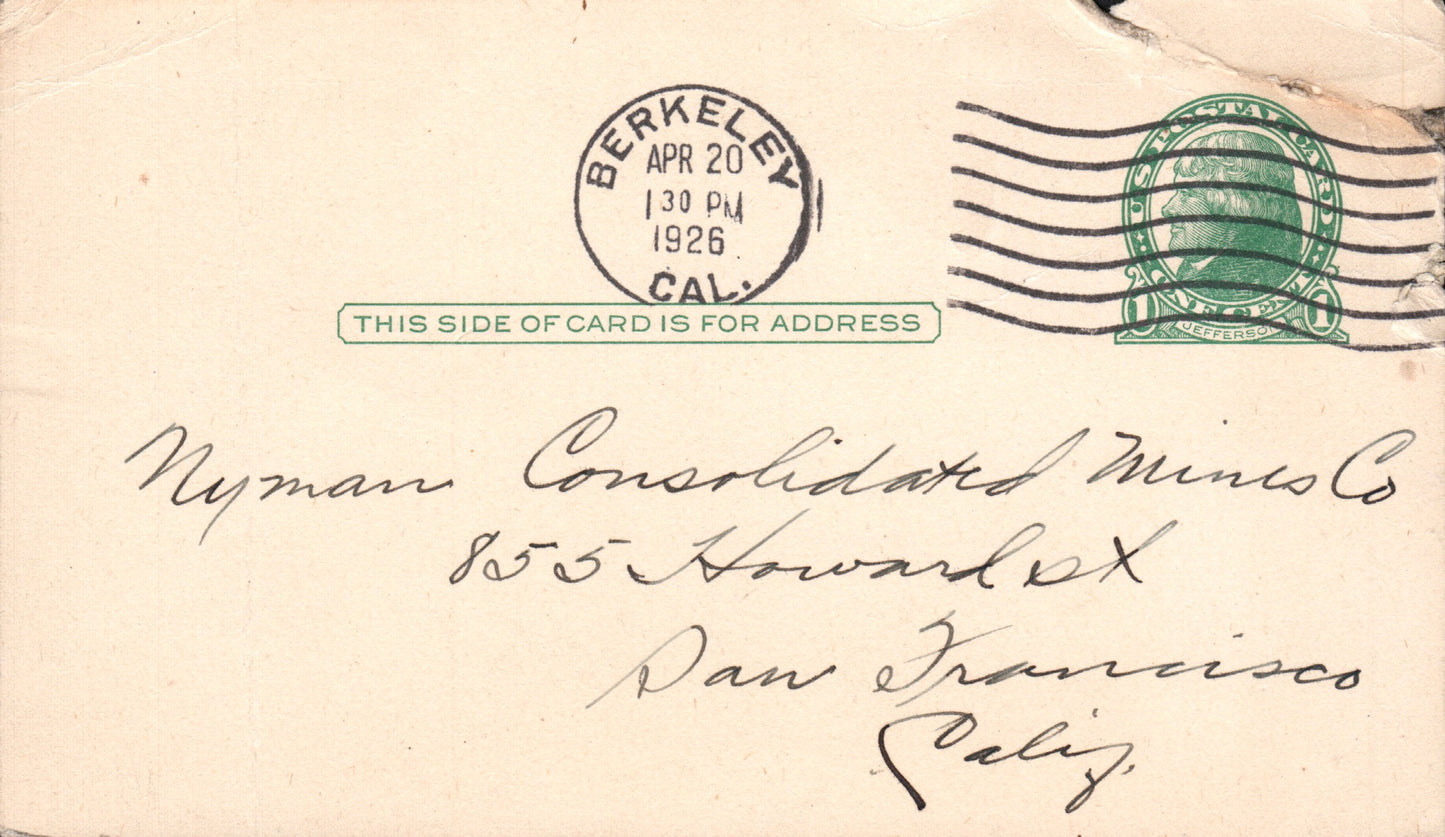 BERKELEY
APR 20
1 30 PM
1926
CAL.
U.S. POSTAL CARD
ONE CENT
1 1
JEFFERSON
THIS SIDE OF CARD IS FOR ADDRESS
Nyman Consolidated Mines Co
855 Howard st
San Francisco
Calif.